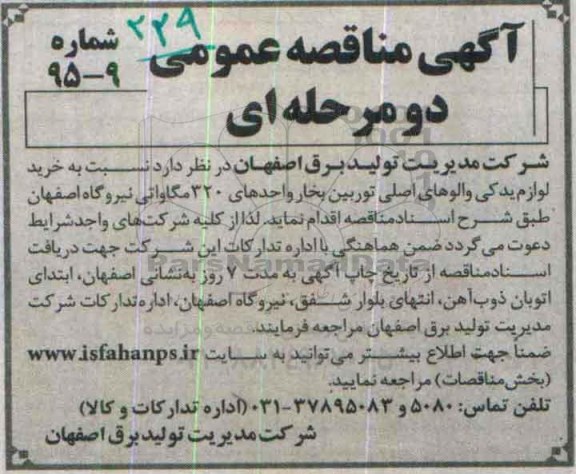 ۲۲۹
آگهی مناقصه عمومی
شماره
۹-۹۵
دو مرحله ای
شرکت مدیریت تولید برق اصفهان در نظر دارد نسبت به خرید
لوازم یدکی والوهای اصلی توربین بخار واحدهای ۳۲۰ مگاواتی نیروگاه اصفهان
طبق شرح اسناد مناقصه اقدام نماید. لذا از کلیه شرکت‌های واجد شرایط
دعوت می گردد ضمن هماهنگی با اداره تدارکات این شرکت جهت دریافت
اسناد مناقصه از تاریخ چاپ آگهی به مدت ۷ روز به‌نشانی اصفهان، ابتدای
اتوبان ذوب‌آهن، انتهای بلوار شفق، نیروگاه اصفهان، اداره تدارکات شرکت
مدیریت تولید برق اصفهان مراجعه فرمایند.
ضمناً جهت اطلاع بیشتر می توانید به سایت www.isfahanps.ir
(بخش مناقصات) مراجعه نمایید.
تلفن تماس: ۵۰۸۰ و ۳۷۸۹۵۰۸۳-۰۳۱ (اداره تدارکات و کالا)
شرکت مدیریت تولید برق اصفهان
ParsNamadData